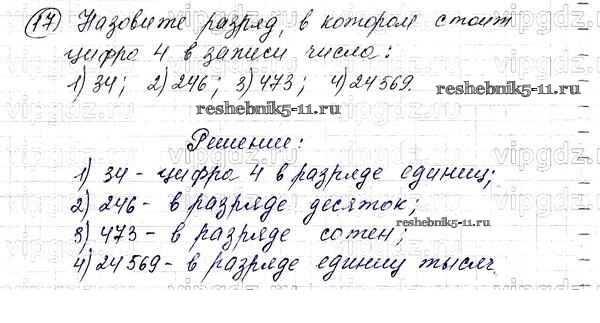 17) Назовите разряд, в котором стоит
цифра 4 в записи числа:
1) 34; 2) 246; 3) 473; 4) 24569.
reshebnik5-11.ru reshebnik5-11.ru
Решение:
1) 34 - цифра 4 в разряде единиц;
2) 246 - в разряде десяток;
reshebnik5-11.ru
3) 473 - в разряде сотен;
4) 24569 - в разряде единиц тысяч.
vipgdz.ru